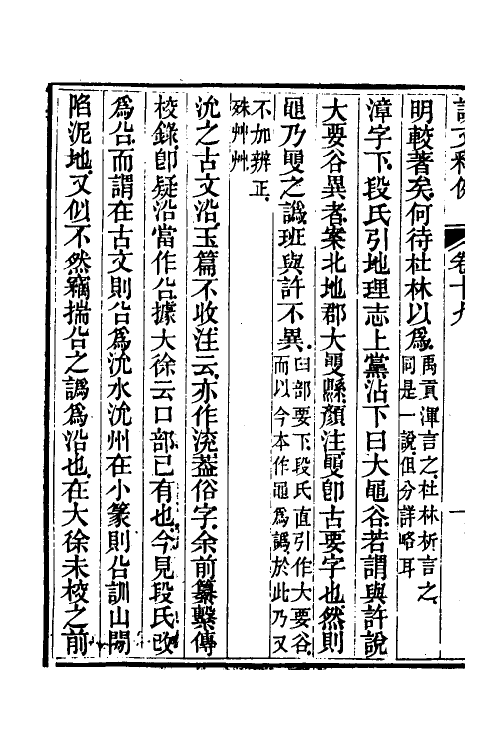 說文釋例
卷十九
一
明較著矣何待杜林以爲
禹貢渾言之杜林析言之
同是一說但分詳略耳
漳字下段氏引地理志上黨沾下曰大黽谷若謂與許說
大要谷異者案北地郡大㚇縣顏注㚇卽古要字也然則
黽乃㚇之譌班與許不異
𦥑部要下段氏直引作大要谷
而以今本作黽爲譌於此乃又
不加辨正
殊艸艸
沇之古文沿玉篇不收注云亦作渷葢俗字余前纂繫傳
校錄卽疑沿當作㕣據大徐云口部已有也今見段氏改
爲㕣而謂在古文則㕣爲沇水沇州在小篆則㕣訓山閒
陷泥地又似不然竊揣㕣之譌爲沿也在大徐未校之前